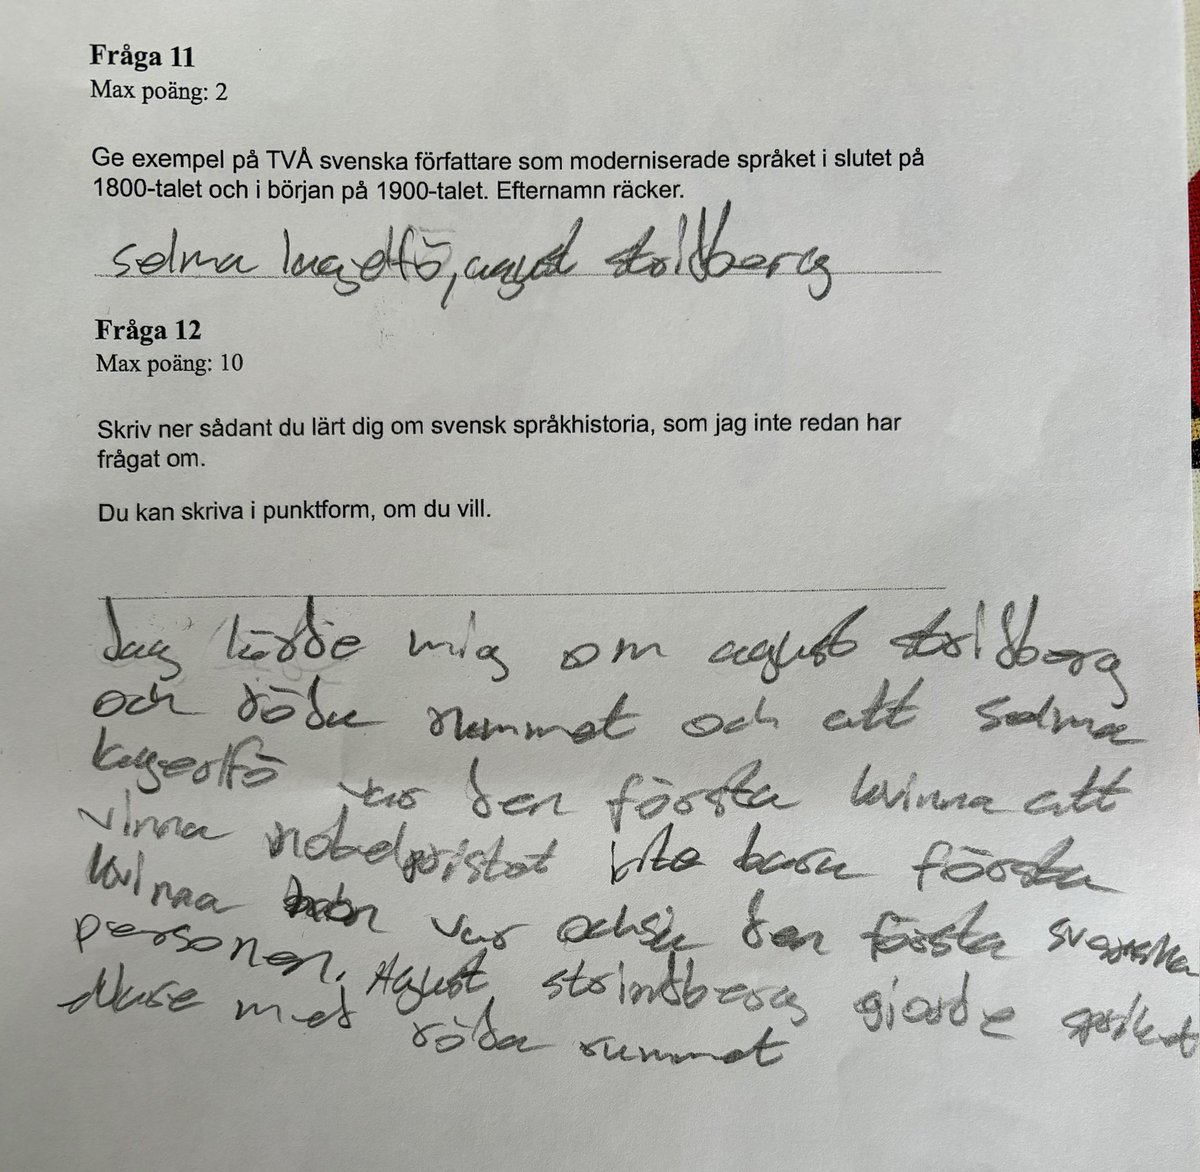 Fråga 11
Max poäng: 2
Ge exempel på TVÅ svenska författare som moderniserade språket i slutet på
1800-talet och i början på 1900-talet. Efternamn räcker.
selma lagelfö, agust stridberg
Fråga 12
Max poäng: 10
Skriv ner sådant du lärt dig om svensk språkhistoria, som jag inte redan har
frågat om.
Du kan skriva i punktform, om du vill.
Jag lärde mig om agust stridberg
och röda rummet och att selma
lagerlfö var den första kvinna att
vinna nobelpristet inte bara första
kvinna var också den första svenska
personen. Agust strindberg gjorde språket
med röda rummet